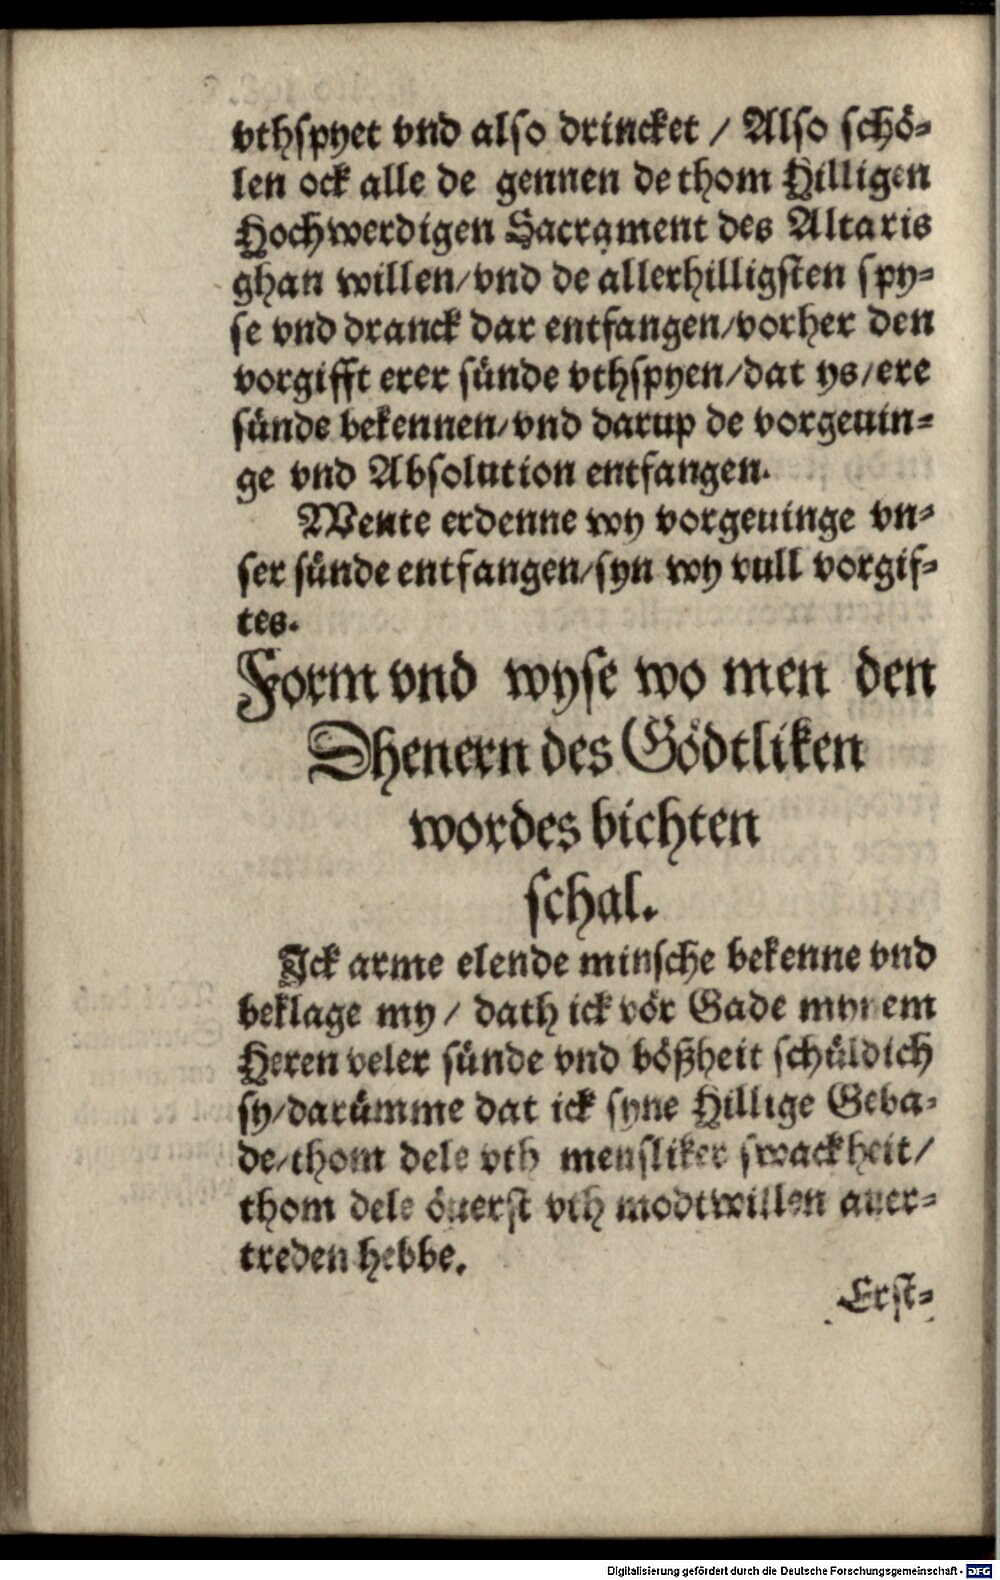 vthspyet vnd also drincket / Also schö-
len ock alle de gennen de thom Hilligen
Hochwerdigen Sacrament des Altaris
ghan willen/vnd de allerhilligsten spy-
se vnd dranck dar entfangen/vorher den
vorgifft erer sünde vthspyen/dat ys/ere
sünde bekennen/vnd darup de vorgeuin-
ge vnd Absolution entfangen.
Wente erdenne wy vorgeuinge vn-
ser sünde entfangen/syn wy vull vorgif-
tes.
Form vnd wyse wo men den
Dhenern des Gödtliken
wordes bichten
schal.
Ick arme elende minsche bekenne vnd
beklage my / dath ick vör Gade mynem
Heren veler sünde vnd bößheit schüldich
sy/darümme dat ick syne Hillige Geba-
de/thom dele vth mensliker swackheit/
thom dele öuerst vth modtwillen auer-
treden hebbe.
Erst-
Digitalisierung gefördert durch die Deutsche Forschungsgemeinschaft - DFG